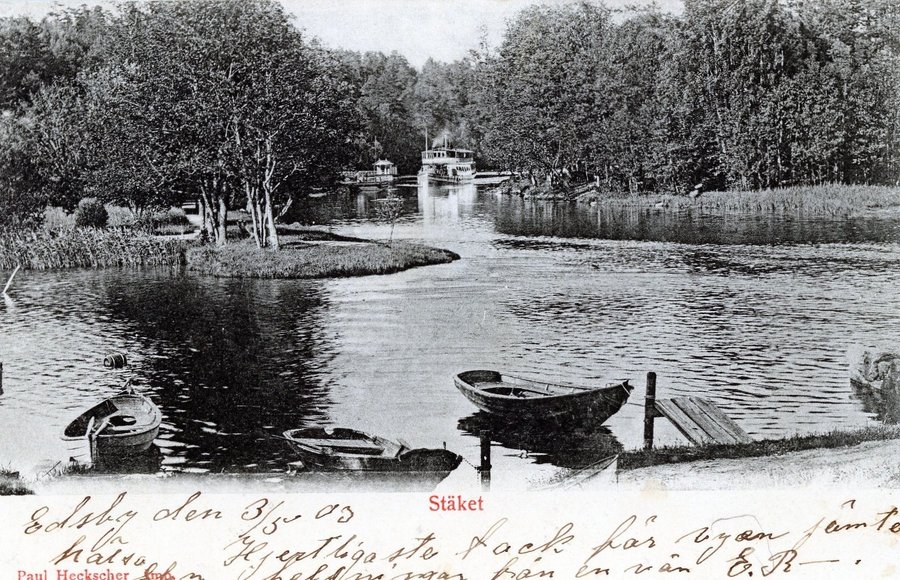 Stäket
Edsby den 3/5 03
Hjertligaste tack för vyen jämte
helsningar från en vän E. R.
Paul Heckscher Imp.